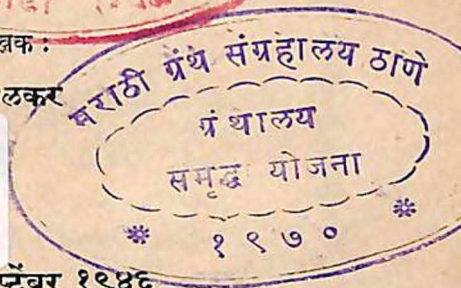 खक :
लकर
मराठी ग्रंथ संग्रहालय ठाणे
ग्रंथालय
समृद्ध योजना
* १९७० *
प्टेंबर १९४६